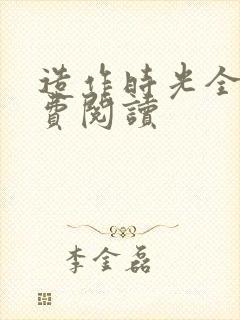 造作時光全
費閱讀
李金磊